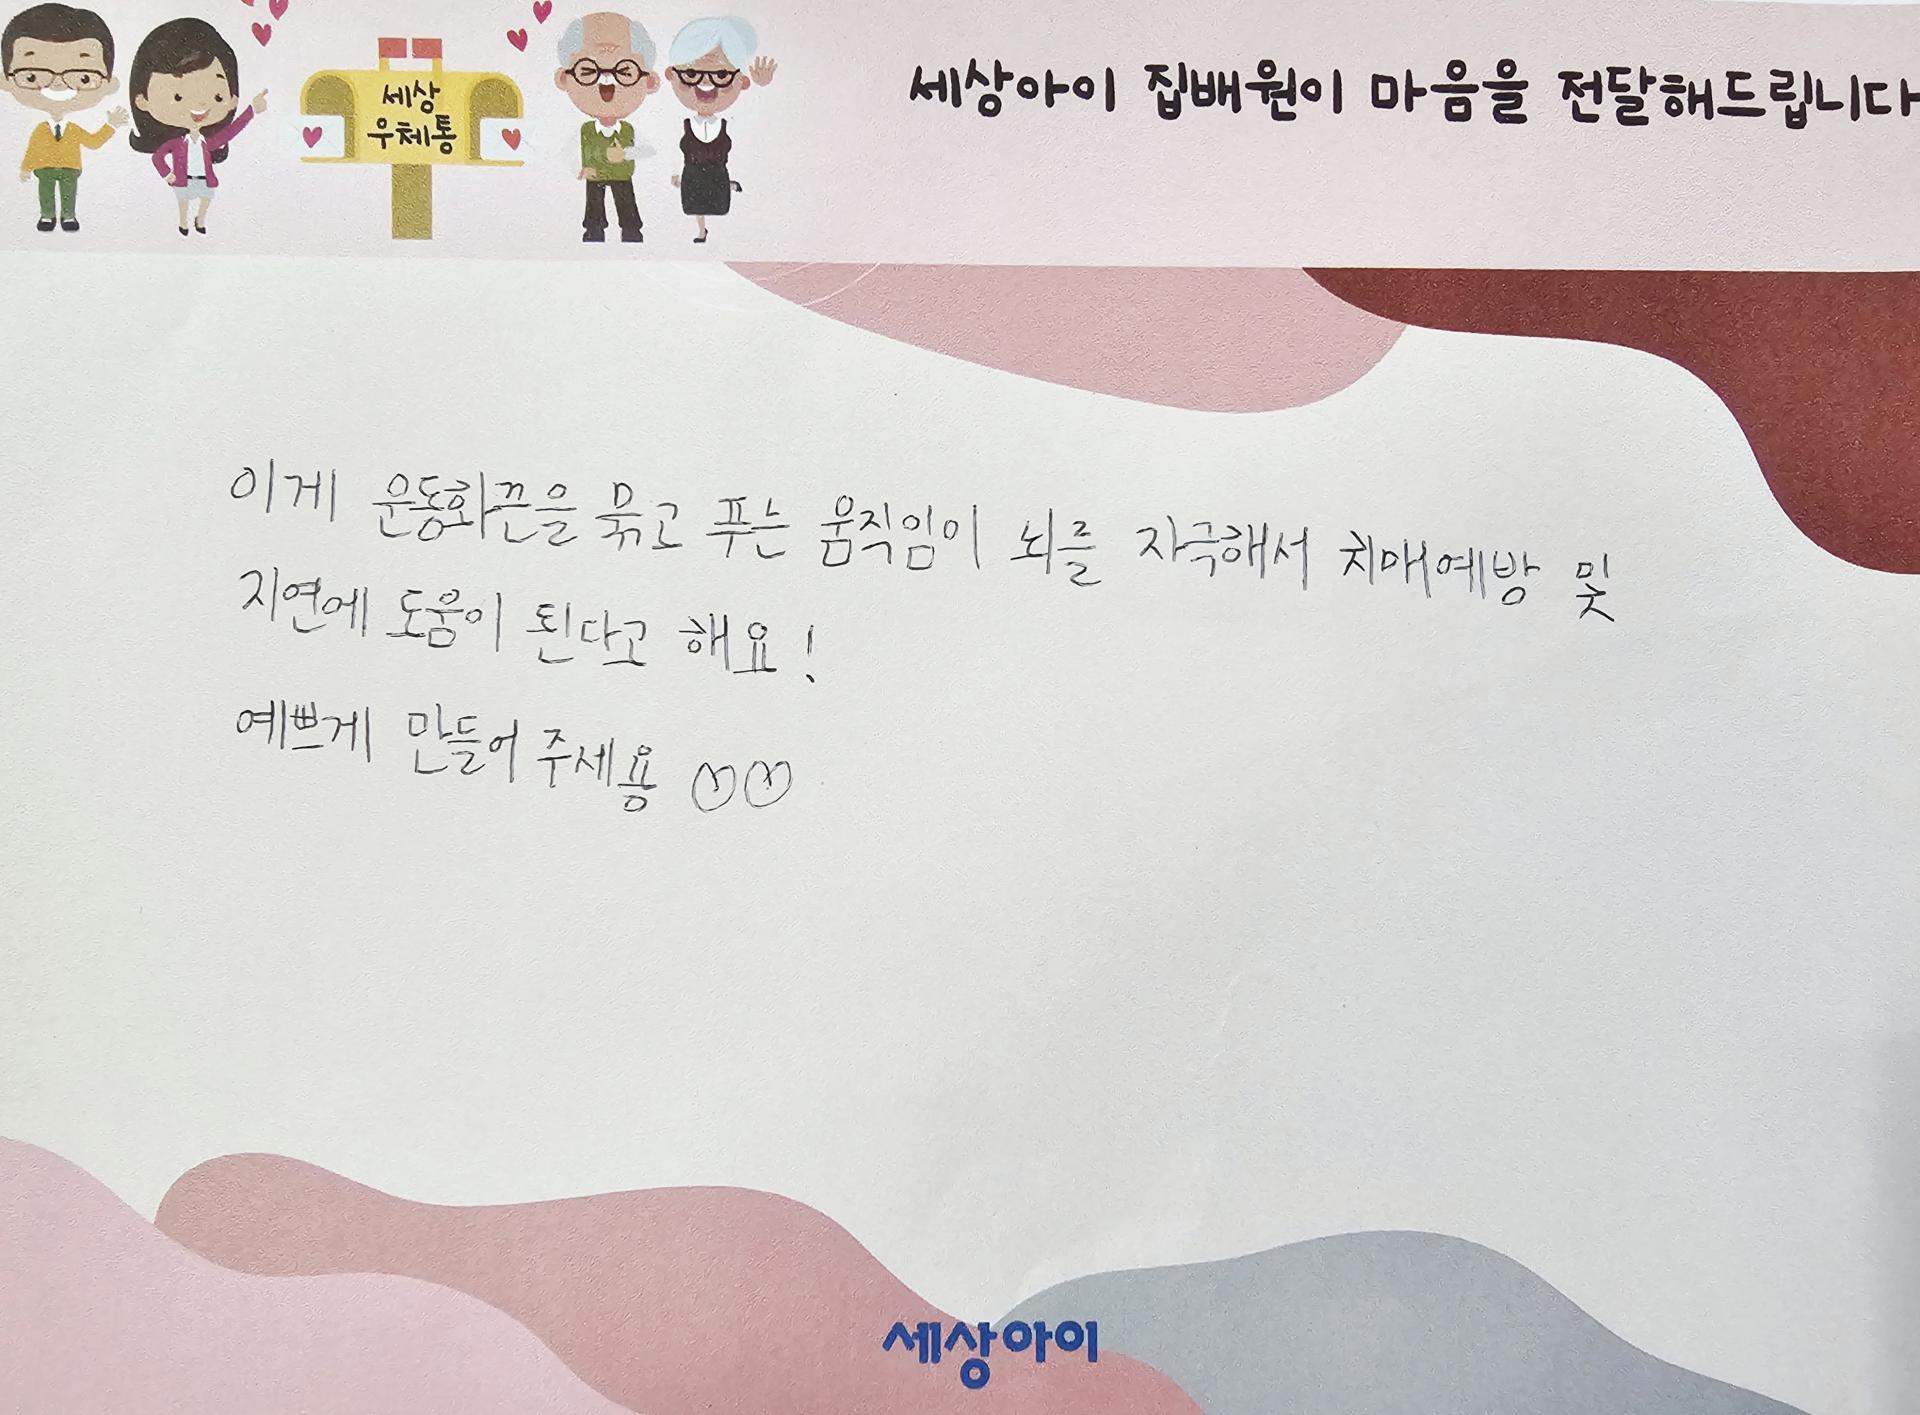 세상
우체통
세상아이 집배원이 마음을 전달해드립니다
이게 운동화끈을 묶고 푸는 움직임이 뇌를 자극해서 치매예방 및
지연에 도움이 된다고 해요!
예쁘게 만들어 주세용 ♡♡
세상아이